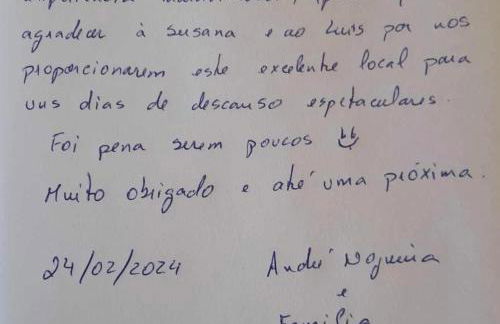 agradecer à Susana e ao Luis por nos
proporcionarem este excelente local para
uns dias de descanso espetaculares.
Foi pena serem poucos
Muito obrigado e até uma próxima.
24/02/2024 André Nogueira
e
Família